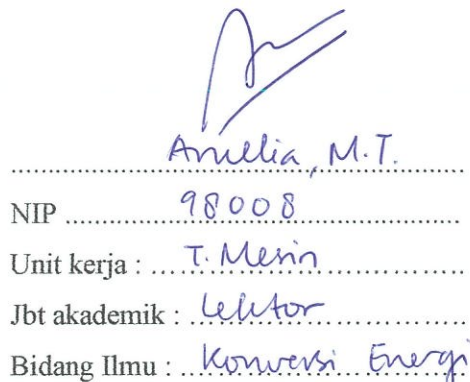 Amelia, M.T.
NIP 98008
Unit kerja : T. Mesin
Jbt akademik : Lektor
Bidang Ilmu : Konversi Energi